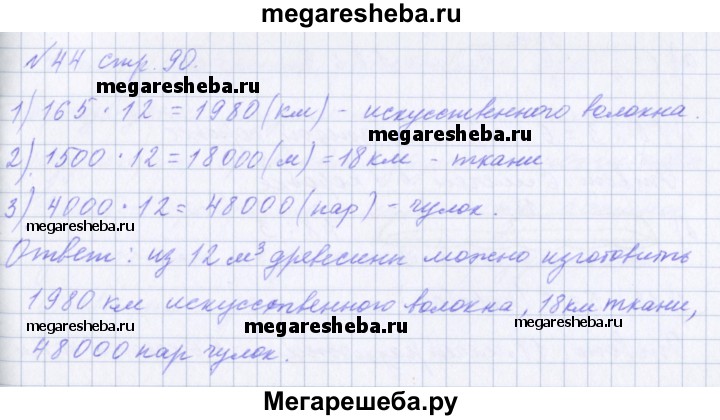 megaresheba.ru
№44 стр. 90.
megaresheba.ru
1) 165 · 12 = 1980 (км) - искусственного волокна.
megaresheba.ru
2) 1500 · 12 = 18000 (м) = 18 км - ткани
3) 4000 · 12 = 48000 (пар) - чулок.
megaresheba.ru
megaresheba.ru
Ответ: из 12 м³ древесины можно изготовить
1980 км искусственного волокна, 18 км ткани,
megaresheba.ru
megaresheba.ru
megaresheba.ru
48000 пар чулок.
Мегарешеба.ру